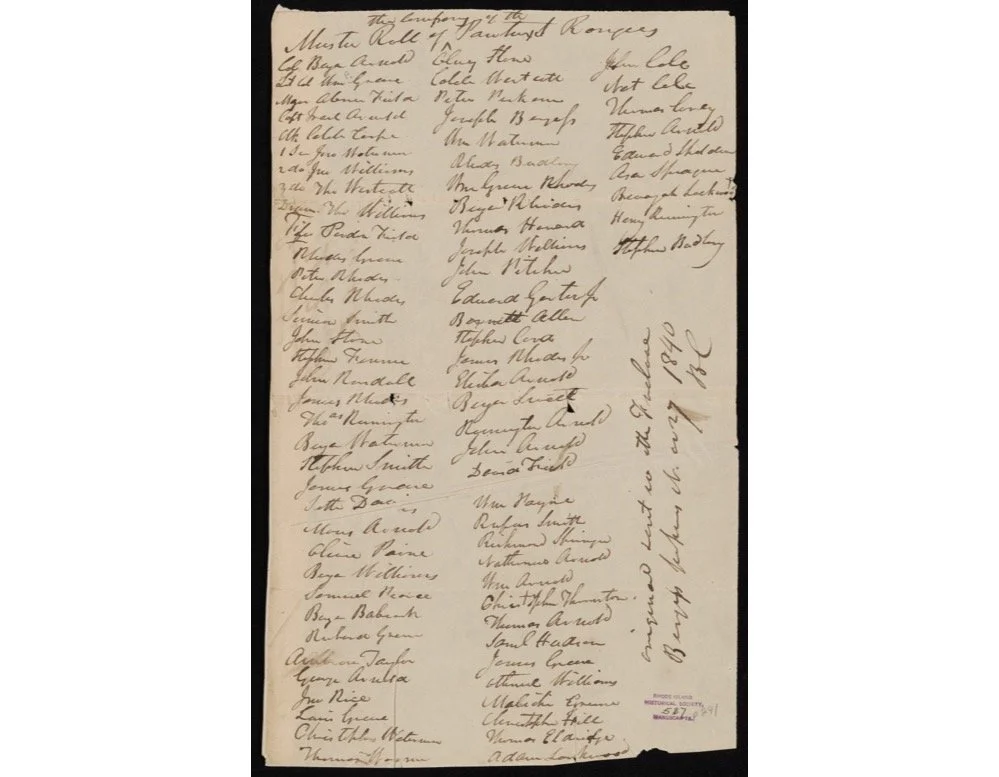 the Company of the
Muster Roll of Pawtuxet Rangers
Col Benja Arnold
Lt Col Wm Greene
Major Abner Field
Capt Arnold
Clk Caleb
1 Ser Jno Waterman
2 do Jno Williams
3 do Tho Westcott
Tho Williams
Fifer Field
Rhodes Greene
Peter Rhodes
Charles Rhodes
Simeon Smith
John Stone
Stephen
John Randall
James Rhodes
Thos Remington
Benja Waterman
Stephen Smith
James Greene
Seth Davis
Moses Arnold
Olive Paine
Benja Williams
Samuel Pearce
Benja Babcock
Richard Greene
Taylor
George Arnold
Jno Rice
Greene
Christopher Waterman
Thomas
Oliney Stone
Caleb Westcott
Peter
Joseph Burgess
Wm Waterman
Rhodes Budlong
Wm Greene Rhodes
Benja Rhodes
Thomas Howard
Joseph Williams
John Pitcher
Edward Jr
Bennett Allen
Stephen
James Rhodes Jr
Elisha Arnold
Benja Sweet
Remington Arnold
John Arnold
David Field
Wm Payne
Rufus Smith
Richmond Springer
Nathaniel Arnold
Wm Arnold
Christopher Thornton
Thomas Arnold
Saml Hudson
James Greene
Othniel Williams
Malichi Greene
Christopher Hill
Thomas Eldridge
Adam Lockwood
John Cole
Nat Cole
Thomas Coney
Stephen Arnold
Edward Sheldon
Asa Sprague
Benajah Lockwood
Henry Remington
Stephen Budlong
original sent to the
27 1840
RHODE ISLAND
HISTORICAL SOCIETY
587
MANUSCRIPTS